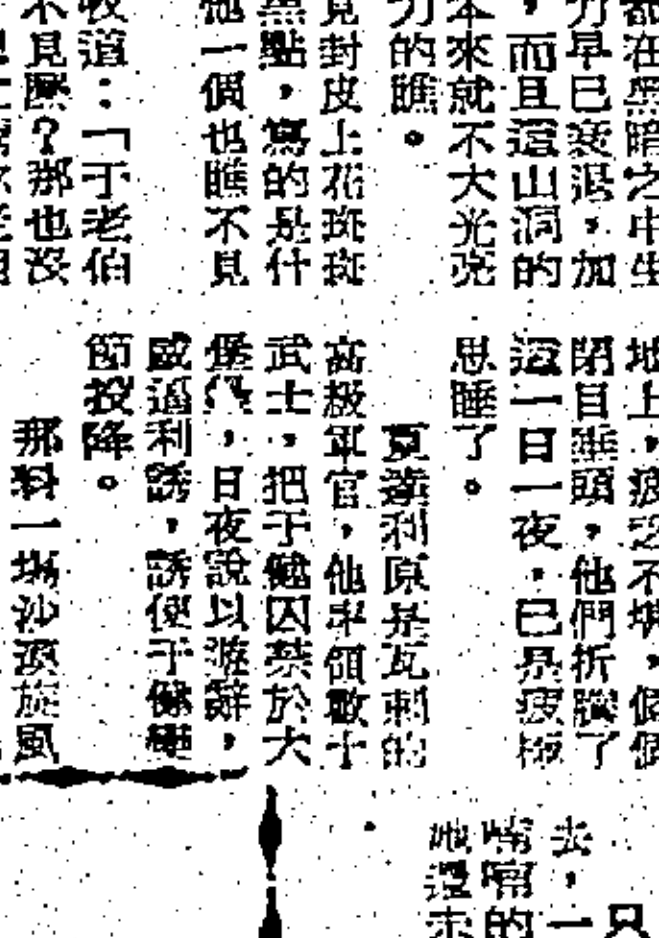 都在黑暗之中生
力早已衰退，加
，而且這山洞的
本來就不大光亮
力的瞧。
見封皮上花斑斑
黑點，寫的是什
他一個也瞧不見
道：「于老伯
不見麼？那也沒
地上，疲乏不堪，個個
閉目垂頭，他們折騰了
這一日一夜，已是疲極
思睡了。
夏達利原是瓦剌的
高級軍官，他率領數十
武士，把于健囚禁於大
堡，日夜說以游辭，
威逼利誘，誘使于健變
節投降。
那料一場沙漠旋風
只
去，一
喃喃的
地還未